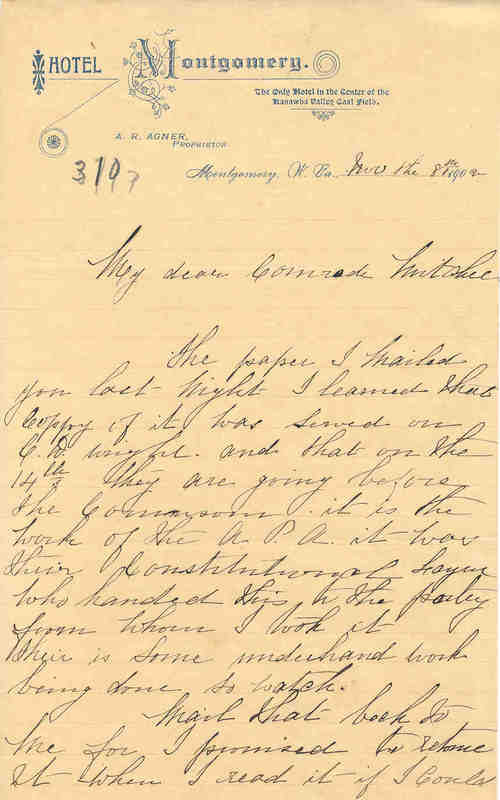 HOTEL Montgomery.
The Only Hotel in the Center of the
Kanawha Valley Coal Field.
A. R. AGNER,
PROPRIETOR
310
Montgomery, W. Va., Nov the 8th 1902
My dear Comrade Mitchel
The paper I Mailed
you last Night I learned that
Coppy of it was served on
C. D. wright. and that on the
14th they are going before
the Commisom. it is the
work of the A. P. A. it was
their Constitutional League
who handed this to the party
from whom I took it
their is some underhand work
being done so watch.
Mail that back to
me for I promised to retone
it when I read it if I Could